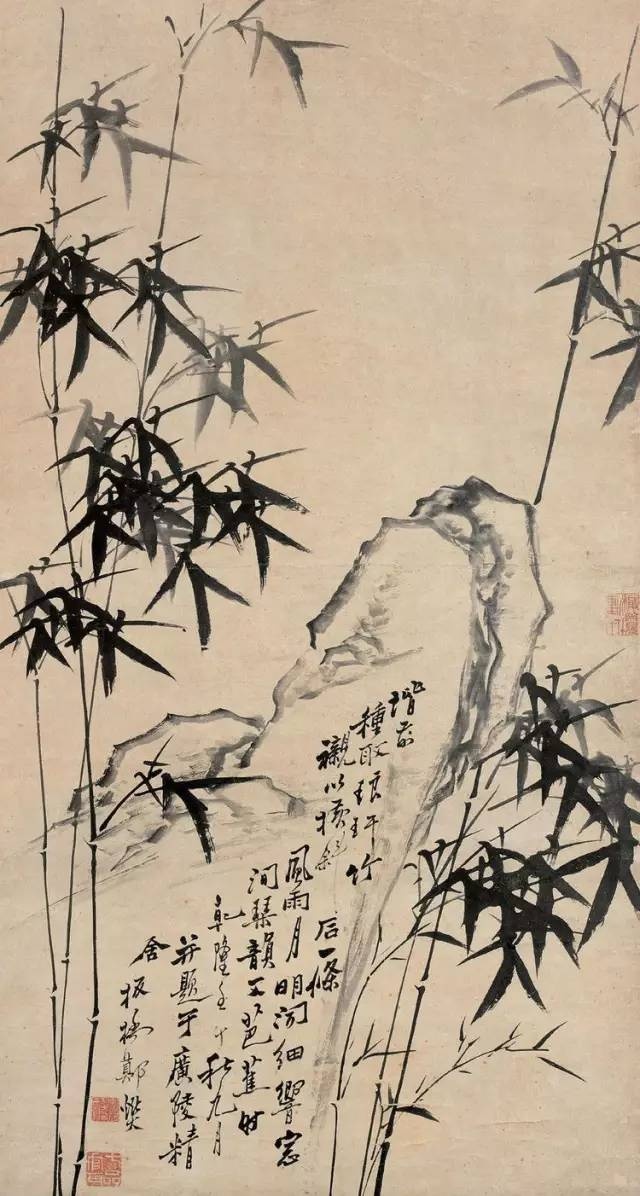 階前
種取琅玕竹
襯以橫斜
石一條
風雨月明聞細響窓
間琴韻下芭蕉时
乾隆壬午秋九月
并題于廣陵精
舍板橋鄭燮